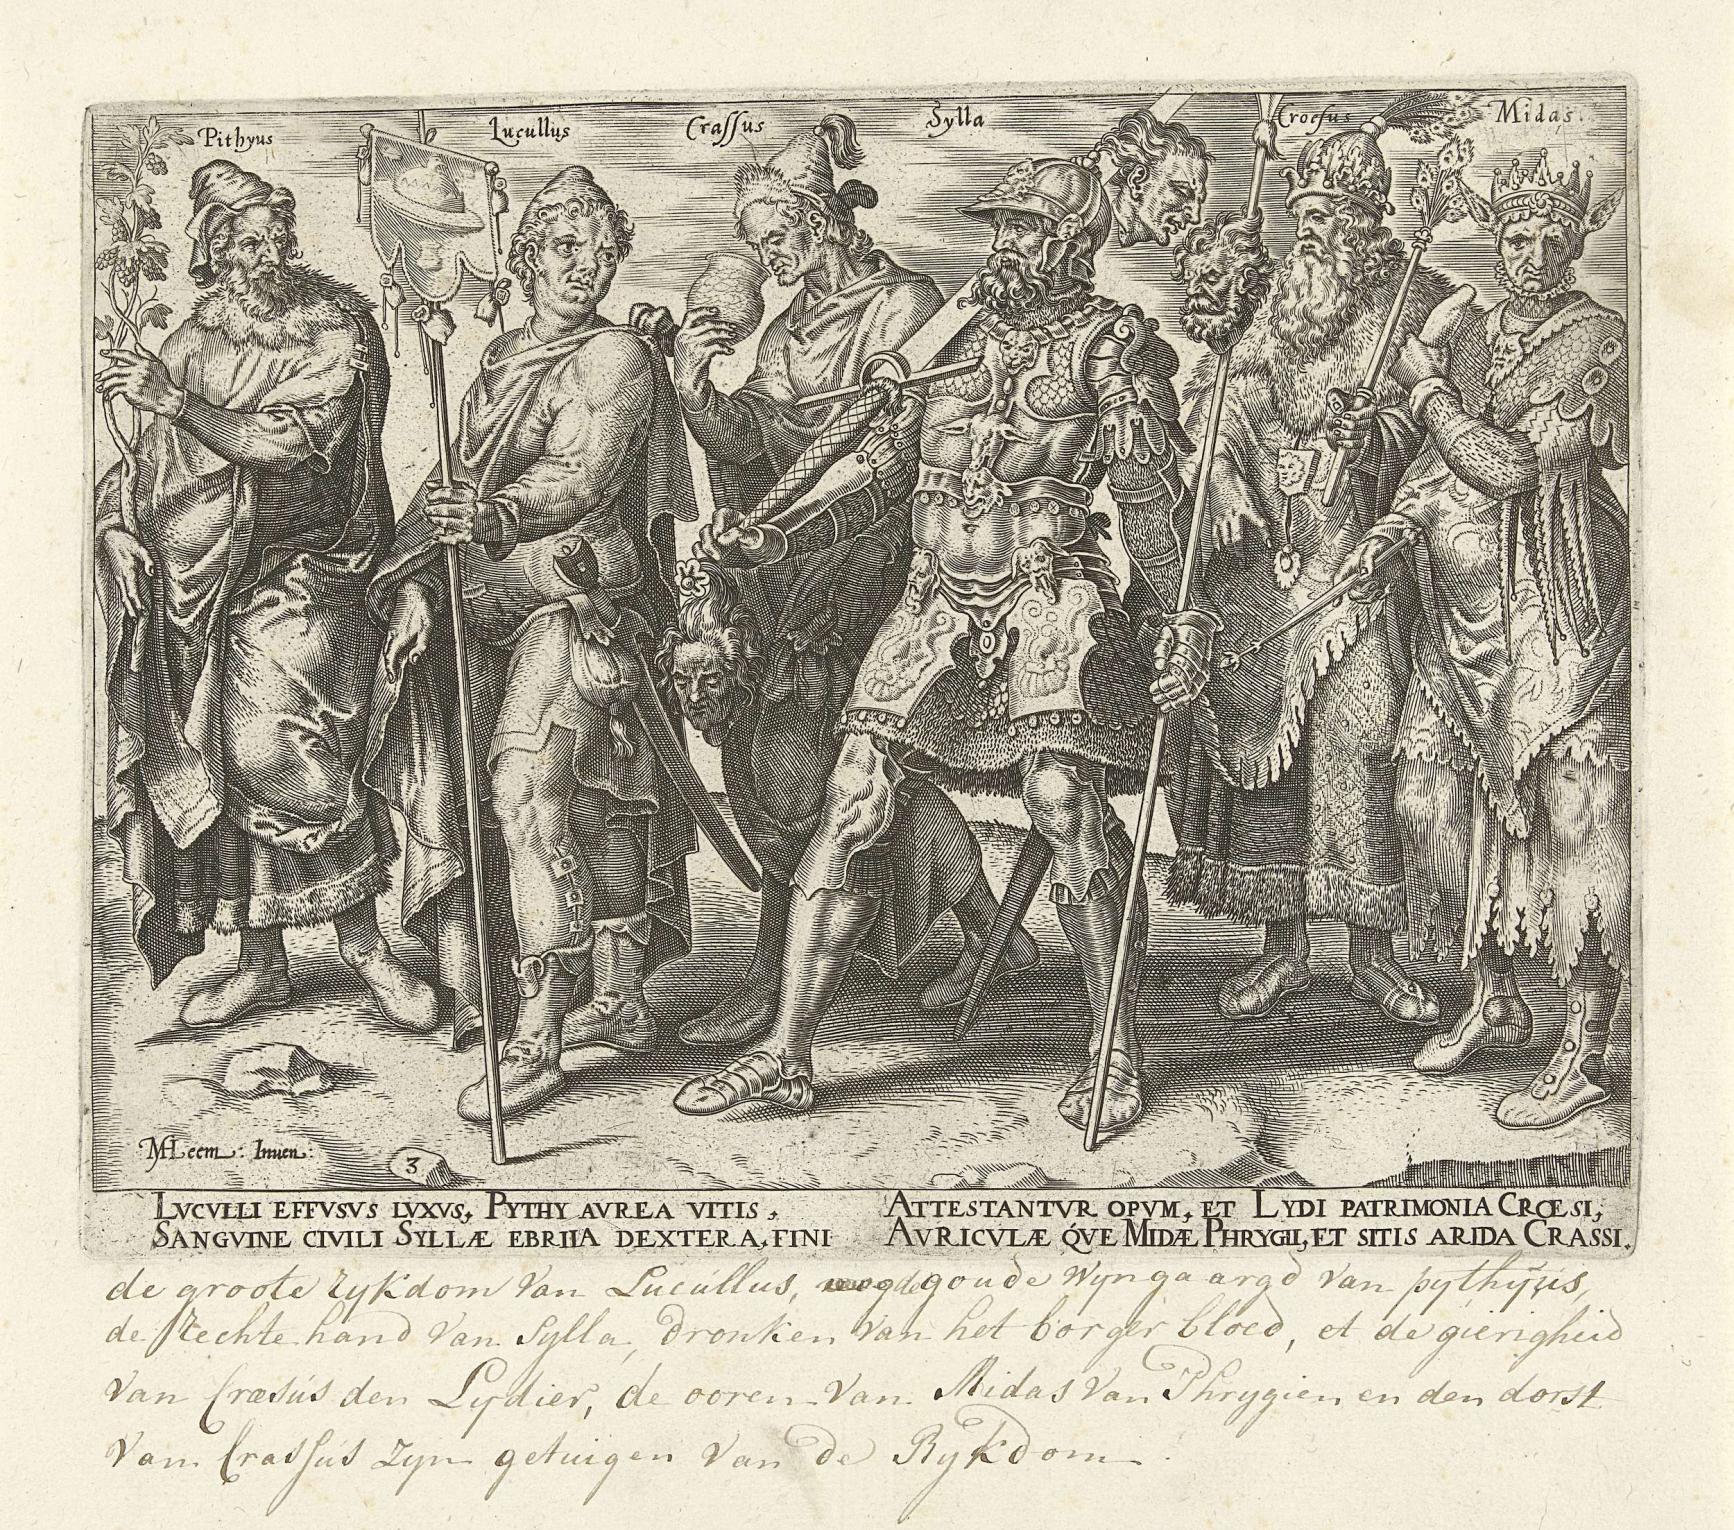 Pithyus Lucullus Crassus Sylla Croesus Midas.
MHeem: Inuen:
3
LVCVLLI EFFVSVS LVXVS, PYTHY AVREA VITIS, ATTESTANTVR OPVM, ET LYDI PATRIMONIA CRŒSI,
SANGVINE CIVILI SYLLÆ EBRIIA DEXTERA, FINI AVRICVLÆ QVE MIDÆ PHRYGII, ET SITIS ARIDA CRASSI.
de groote rykdom Van Lucullus, goude Wyngaargd van pythyus,
de Rechte hand Van Sylla, Dronken Van het borger bloed, et de gierigheid
Van Cræsus den Lydier, de ooren Van Midas Van Phrygien en den dorst
Van Crassus Zyn getuigen Van de Rykdom.